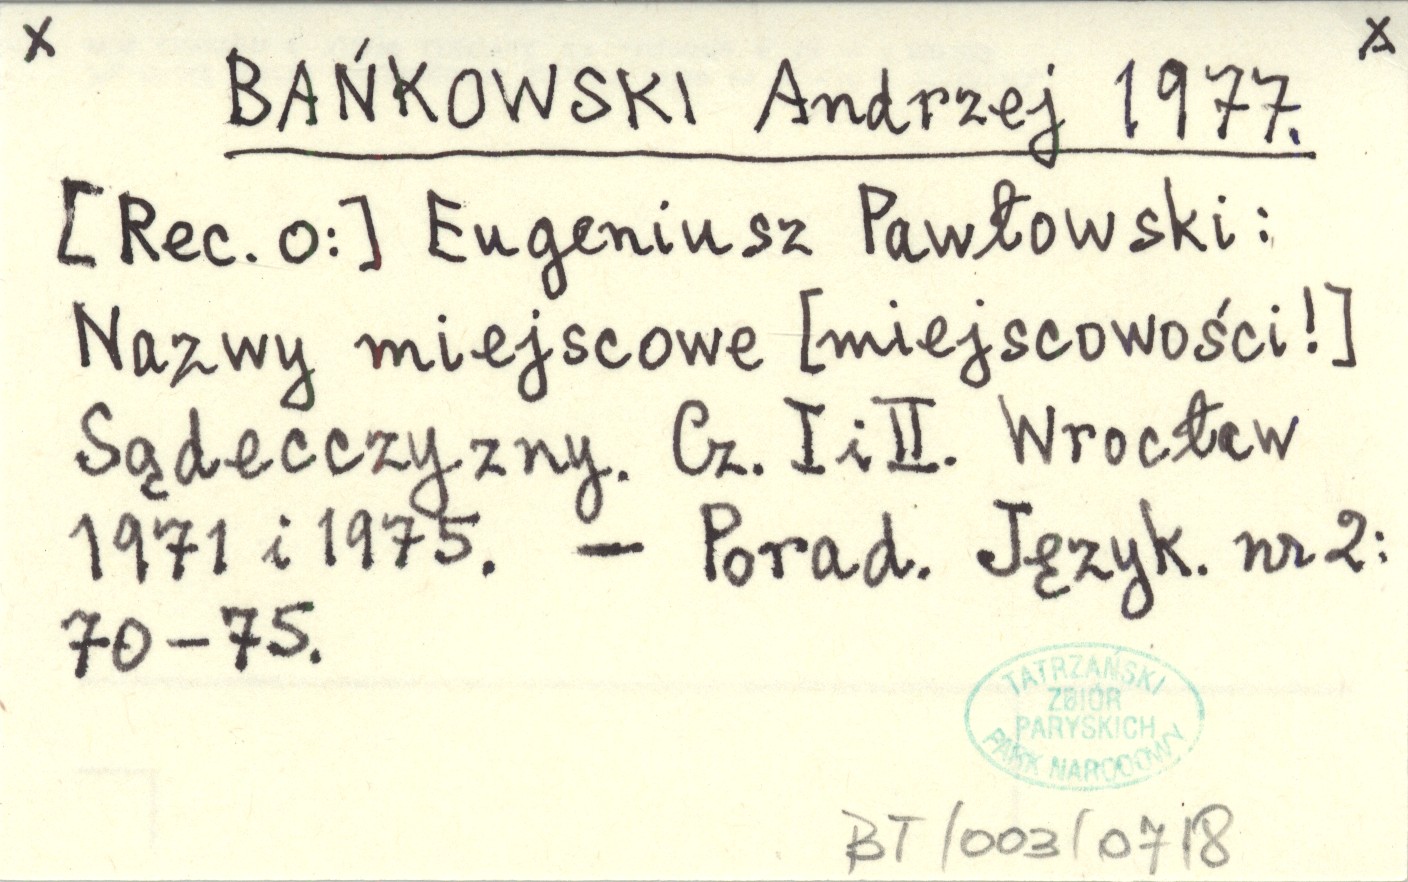 x x
BAŃKOWSKI Andrzej 1977.
[Rec. o:] Eugeniusz Pawłowski:
Nazwy miejscowe [miejscowości!]
Sądecczyzny. Cz. I i II. Wrocław
1971 i 1975. — Porad. Język. nr 2:
70-75.
TATRZAŃSKI
ZBIÓR
PARYSKICH
PARK NARODOWY
BT/003/0718